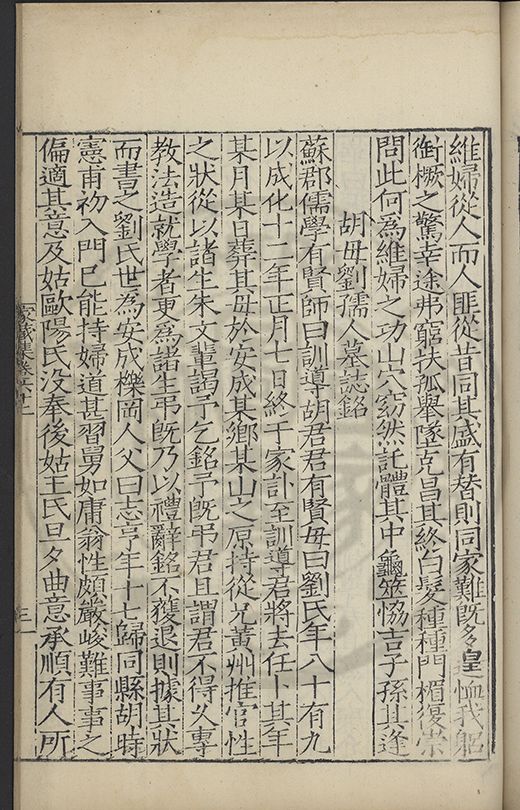 維婦從人而人匪從昔同其盛有替則同家難既多皇恤我躬
銜橛之驚幸途弗窮扶孤舉墜克昌其終白髮種種門楣復崇
問此何為維婦之功山穴窈然託體其中龜筮恊吉子孫其逢
胡母劉孺人墓誌銘
蘇郡儒學有賢師曰訓導胡君君有賢母曰劉氏年八十有九
以成化十二年正月七日終于家訃至訓導君將去任卜其年
某月某日葬其母於安成某鄉某山之原持從兄黃州推官性
之狀從以諸生朱文輩謁予乞銘予既弔君且謂君不得久專
教法造就學者更為諸生弔既乃以禮辭銘不獲退則據其狀
而書之劉氏世為安成櫟岡人父曰志亨年十七歸同縣胡時
憲甫初入門已能持婦道甚習舅如庸翁性頗嚴峻難事事之
偏適其意及姑歐陽氏没奉後姑王氏旦夕曲意承順有人所
家藏集卷六十一
三